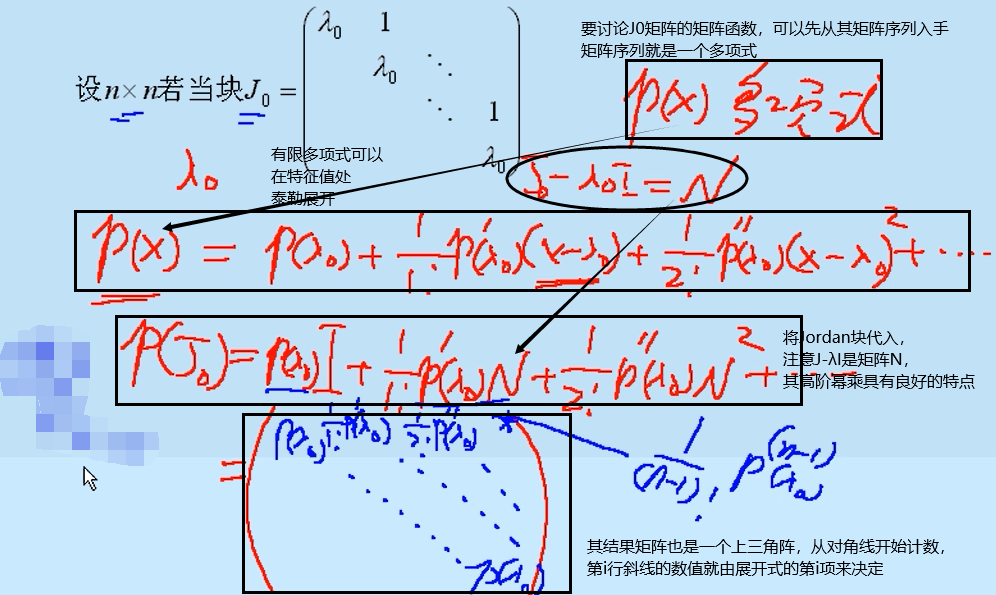 要讨论J0矩阵的矩阵函数，可以先从其矩阵序列入手
矩阵序列就是一个多项式
设n×n若当块J₀ =
λ₀ 1
λ₀ ⋱
⋱ 1
λ₀
p(x) 多项式
λ₀
有限多项式可以
在特征值处
泰勒展开
J₀ - λ₀I = N
p(x) = p(λ₀) + 1/1! p'(λ₀)(x-λ₀) + 1/2! p''(λ₀)(x-λ₀)² + ⋯
p(J₀) = p(λ₀)I + 1/1! p'(λ₀)N + 1/2! p''(λ₀)N² + ⋯
将Jordan块代入，
注意J-λI是矩阵N，
其高阶幂乘具有良好的特点
= p(λ₀) 1/1! p'(λ₀) 1/2! p''(λ₀) ⋯ *
1/(n-1)! p⁽ⁿ⁻¹⁾(λ₀)
p(λ₀)
其结果矩阵也是一个上三角阵，从对角线开始计数，
第i行斜线的数值就由展开式的第i项来决定